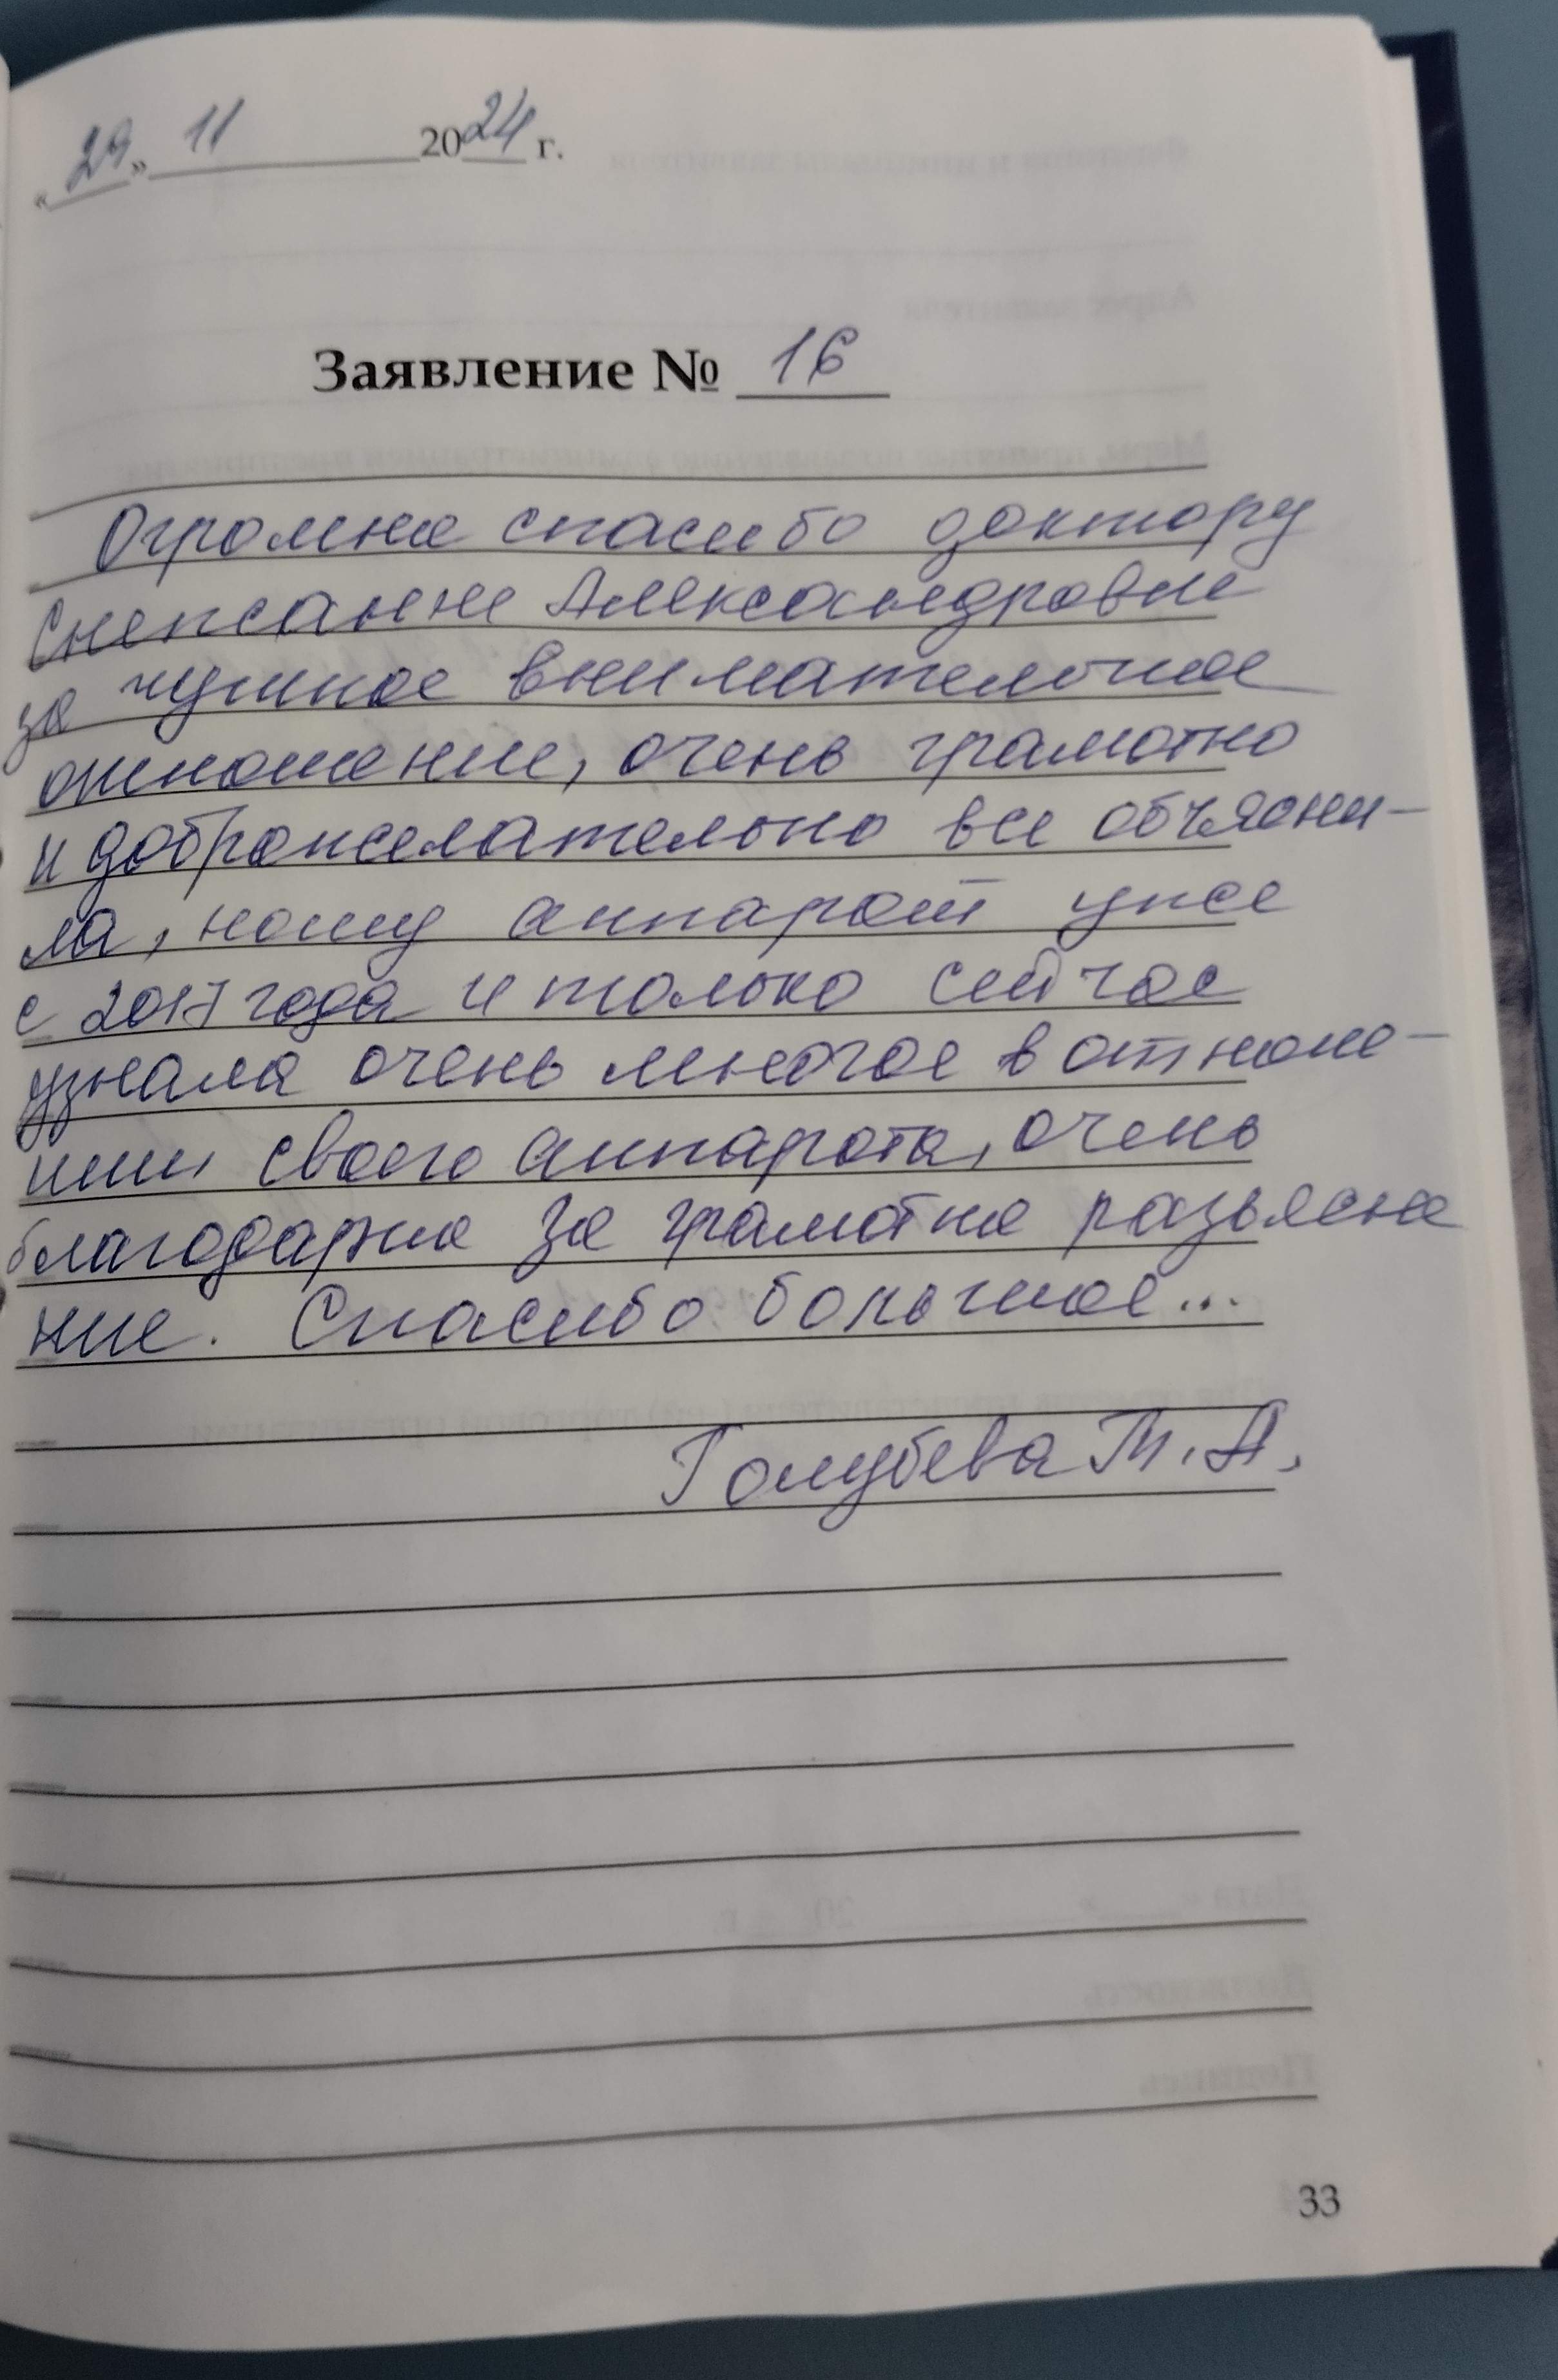 «29» 11 2024 г.
Заявление № 16
Огромное спасибо доктору
Снежанне Александровне
за чуткое внимательное
отношение, очень грамотно
и доброжелательно все объясни-
ла, ношу аппарат уже
с 2017 года и только сейчас
узнала очень многое в отноше-
нии своего аппарата, очень
благодарна за грамотное разъясне
ние. Спасибо большое...
Голубева Т.А.
33